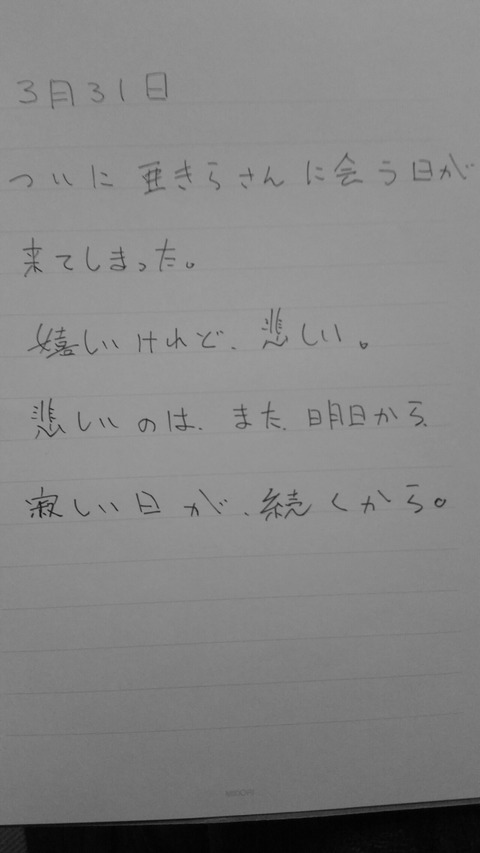 3月31日
ついに亜きらさんに会う日が
来てしまった。
嬉しいけれど、悲しい。
悲しいのは、また、明日から、
寂しい日が、続くから。
MIDORI